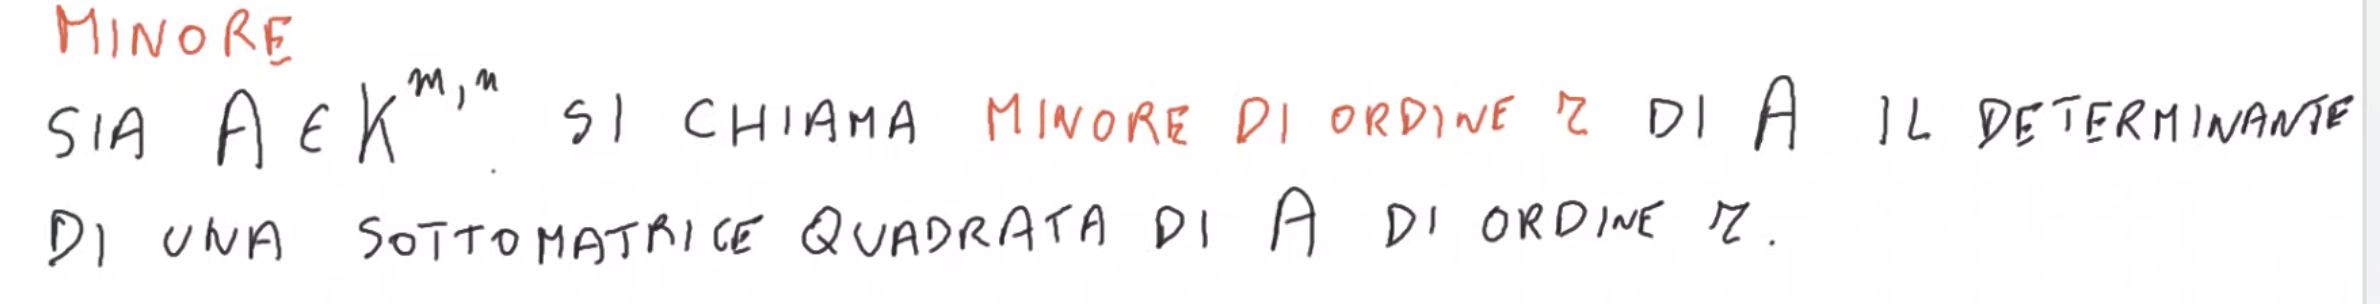 MINORE
SIA A ∈ K^m,n. SI CHIAMA MINORE DI ORDINE r DI A IL DETERMINANTE
DI UNA SOTTOMATRICE QUADRATA DI A DI ORDINE r.